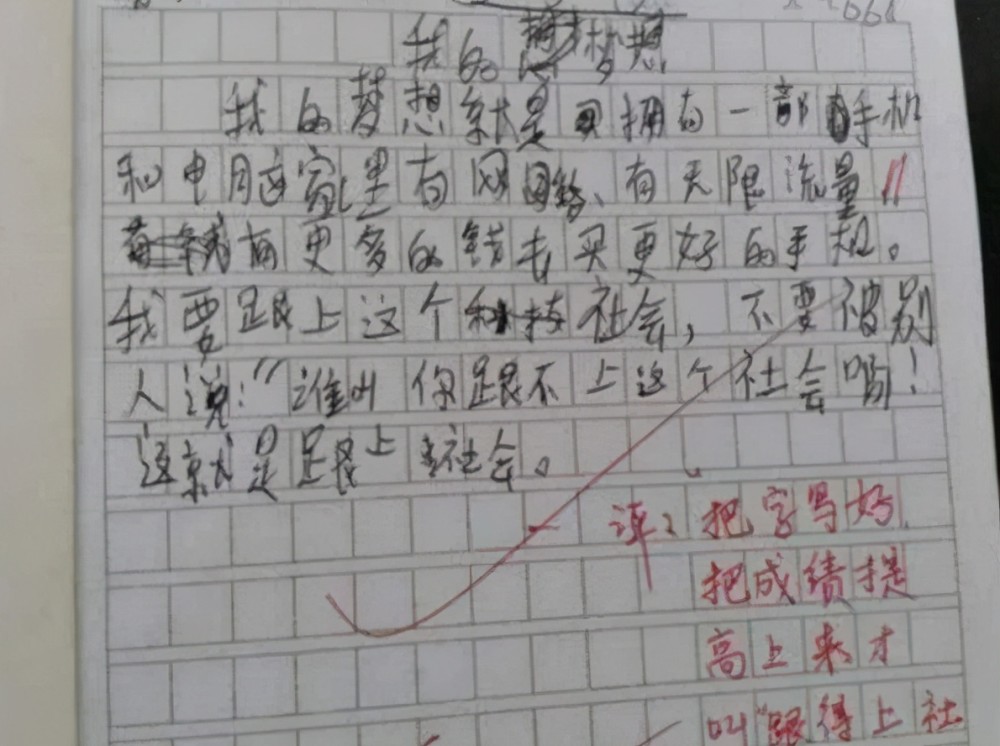 我的梦想
我的梦想就是拥有一部手机
和电脑家里有网络、有无限流量
有更多的钱去买更好的手机。
我要跟上这个社会,不要被别
人说:"谁叫你跟不上这个社会啊!
这就是跟上社会。
评:把字写好,
把成绩提
高上来才
叫"跟得上社